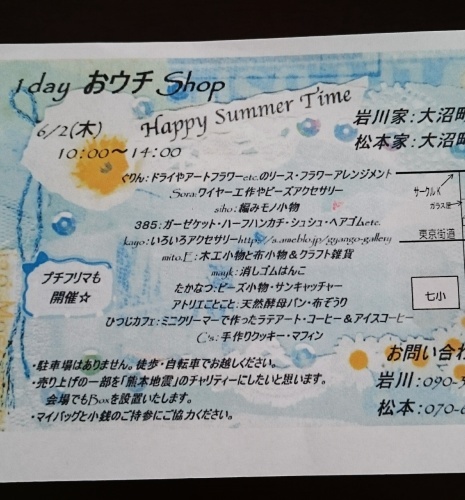 1 day おウチ Shop
6/2(木)
10:00～14:00
Happy Summer Time
岩川家：大沼町
松本家：大沼町
ぐりん：ドライやアートフラワーetc.のリース・フラワーアレンジメント
Sora:ワイヤー工作やビーズアクセサリー
siho：編みモノ小物
385：ガーゼケット・ハーフハンカチ・シュシュ・ヘアゴムetc.
kayo：いろいろアクセサリーhttp://s.ameblo.jp/gyango-gallery
mito.E：木工小物と布小物＆クラフト雑貨
mayk：消しゴムはんこ
たかなつ：ビーズ小物・サンキャッチャー
アトリエことこと：天然酵母パン・布ぞうり
ひつじカフェ：ミニクリーマーで作ったラテアート・コーヒー＆アイスコーヒー
C's：手作りクッキー・マフィン
プチフリマも
開催☆
サークルK
ガラス屋
東京街道
七小
・駐車場はありません。徒歩・自転車でお越しください。
・売り上げの一部を「熊本地震」のチャリティーにしたいと思います。
会場でもBoxを設置いたします。
・マイバッグと小銭のご持参にご協力ください。
お問い合わ
岩川：090-
松本：070-